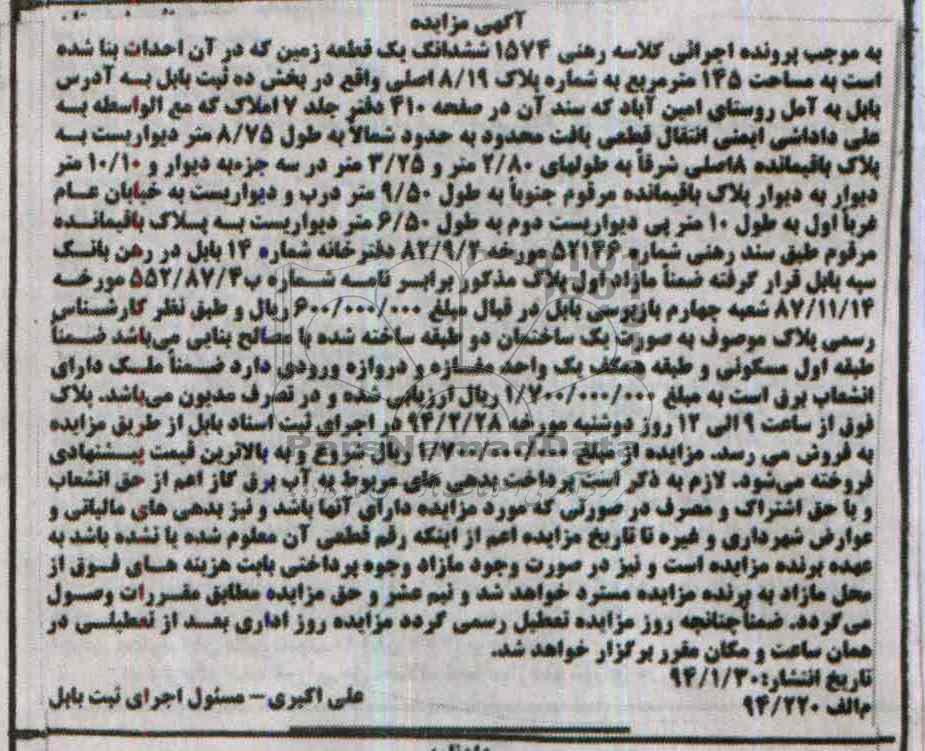 آگهی مزایده
به موجب پرونده اجرائی کلاسه رهنی ۱۵۷۴ ششدانگ یک قطعه زمین که در آن احداث بنا شده
است به مساحت ۱۴۵ مترمربع به شماره پلاک ۸/۱۹ اصلی واقع در بخش ده ثبت بابل به آدرس
بابل به آمل روستای امین آباد که سند آن در صفحه ۴۱۰ دفتر جلد ۷ املاک که مع الواسطه به
علی داداشی ایمنی انتقال قطعی یافت محدود به حدود شمالاً به طول ۸/۷۵ متر دیواریست به
پلاک باقیمانده ۸اصلی شرقاً به طولهای ۲/۸۰ متر و ۳/۲۵ متر در سه جزءبه دیوار و ۱۰/۱۰ متر
دیوار به دیوار پلاک باقیمانده مرقوم جنوباً به طول ۹/۵۰ متر درب و دیواریست به خیابان عام
غرباً اول به طول ۱۰ متر پی دیواریست دوم به طول ۶/۵۰ متر دیواریست به پلاک باقیمانده
مرقوم طبق سند رهنی شماره ۵۲۱۴۶ مورخه ۸۲/۹/۲ دفترخانه شماره ۱۴ بابل در رهن بانک
سپه بابل قرار گرفته ضمناً مازاد اول پلاک مذکور برابر نامه شماره ب۵۵۲/۸۷/۴ مورخه
۸۷/۱۱/۱۴ شعبه چهارم بازپرسی بابل در قبال مبلغ ۶۰۰/۰۰۰/۰۰۰ ریال و طبق نظر کارشناس
رسمی پلاک موصوف به صورت یک ساختمان دو طبقه ساخته شده با مصالح بنایی می‌باشد ضمناً
طبقه اول مسکونی و طبقه همکف یک واحد مغازه و دروازه ورودی دارد ضمناً ملک دارای
انشعاب برق است به مبلغ ۱/۷۰۰/۰۰۰/۰۰۰ ریال ارزیابی شده و در تصرف مدیون می‌باشد. پلاک
فوق از ساعت ۹ الی ۱۲ روز دوشنبه مورخه ۹۴/۲/۲۸ در اجرای ثبت اسناد بابل از طریق مزایده
به فروش می رسد. مزایده از مبلغ ۱/۷۰۰/۰۰۰/۰۰۰ ریال شروع و به بالاترین قیمت پیشنهادی
فروخته می‌شود. لازم به ذکر است پرداخت بدهی های مربوط به آب برق گاز اعم از حق انشعاب
و یا حق اشتراک و مصرف در صورتی که مورد مزایده دارای آنها باشد و نیز بدهی های مالیاتی و
عوارض شهرداری و غیره تا تاریخ مزایده اعم از اینکه رقم قطعی آن معلوم شده یا نشده باشد به
عهده برنده مزایده است و نیز در صورت وجود مازاد وجوه پرداختی بابت هزینه های فوق از
محل مازاد به برنده مزایده مسترد خواهد شد و نیم عشر و حق مزایده مطابق مقررات وصول
می‌گردد. ضمناًچنانچه روز مزایده تعطیل رسمی گردد مزایده روز اداری بعد از تعطیلی در
همان ساعت و مکان مقرر برگزار خواهد شد.
تاریخ انتشار: ۹۴/۱/۳۰
م‌الف ۹۴/۲۲۰
علی اکبری- مسئول اجرای ثبت بابل
ParsNamadData